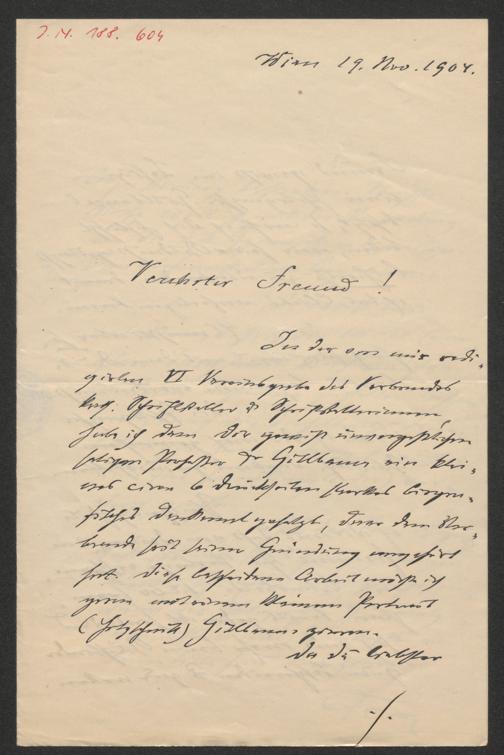 J.N. 188. 604
Wien 19. Nov. 1904.
Verehrter Freund!
In der von mir redi-
girten VI Vereinsgabe des Verbandes
kath. Schriftsteller & Schriftstellerinnen
habe ich dem der gewiß unvergeßlichen
seligen Professor Dr Gitlbauer ein klei-
nes circa 6 Druckseiten starkes biogra-
fisches Denkmal gesetzt, der dem Ver-
bande seit seiner Gründung angehört
hat. Diese bescheidene Arbeit möchte ich
gern mit einem kleinen Portrait
(Holzschnitt) Gitlbauers zieren.
Da Du
./.